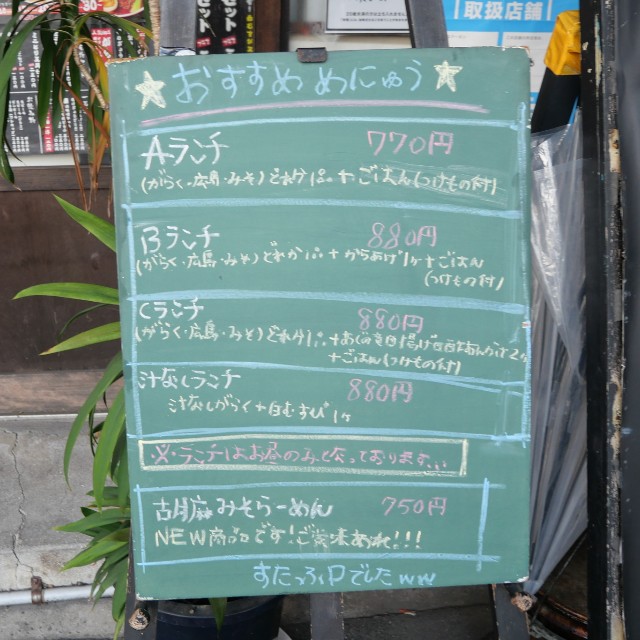 取扱店舗
おすすめ めにゅう
Aランチ 770円
(がらく・広島・みそ)どれか1つ + ごはん(つけもの付)
Bランチ 880円
(がらく・広島・みそ)どれか1つ + からあげ1ヶ + ごはん
(つけもの付)
Cランチ 880円
(がらく・広島・みそ)どれか1つ
+ごはん(つけもの付)
汁なしランチ 880円
汁なしがらく + 白むすび1ヶ
※・ランチはお昼のみとなっております、、
胡麻みそらーめん 750円
NEW商品です!ご賞味あれ!!!
すたっふPでしたww